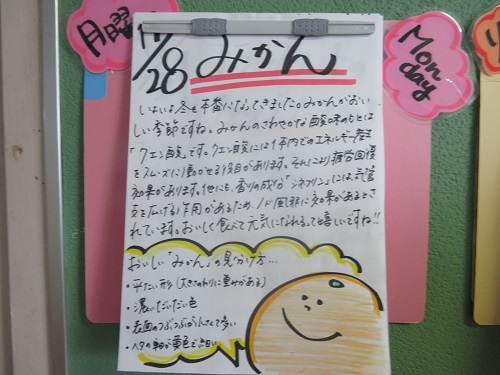 月曜
Monday
11/28 みかん
いよいよ冬も本番になってきました。みかんがおい
しい季節ですね。みかんのさわやかな酸味のもとは
「クエン酸」です。クエン酸には体内でのエネルギー産生
をスムーズに進めせる役目があります。それにより疲労回復
効果があります。他にも、香りの成分「シネフリン」には、気管
支を広げる作用があるため、ノド風邪に効果があるとさ
れています。おいしく食べて元気になれるって嬉しいですね!!
おいしい「みかん」の見分け方…
・平たい形(大きさのわりに重みがある)
・濃いだいだい色
・表面のつぶつぶが小さくて多い
・ヘタの軸が黄色で細い